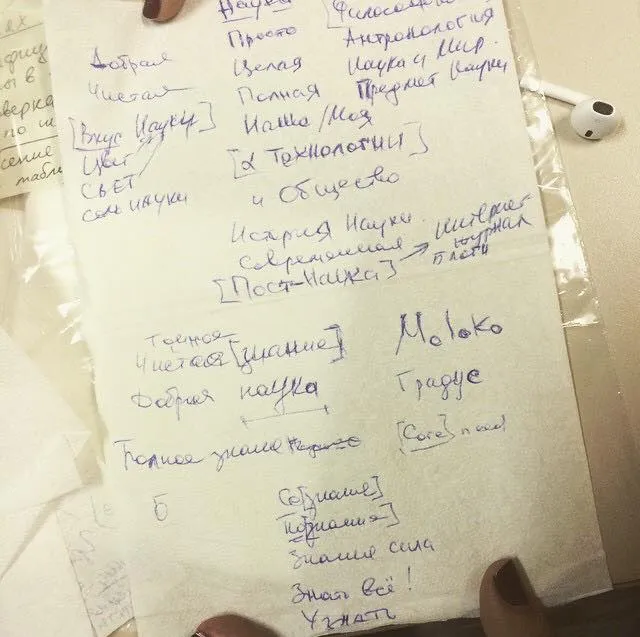 Наука [Философия
Просто Антропология
Добрая Целая Наука и Мир.
Чистая Полная Предмет Науки
[Вкус Науки] Наша/Моя
Цвет [α Технологии]
СВЕТ и Общество
семь науки
История Науки.
современная
[Пост-Наука] → интернет журнал
Точное
Чистая [знание] Moloko
Добрая наука Градус
Полное знание [Core] food
Б Со[знание]
По[знания]
Знание сила
Знать всё!
Узнать